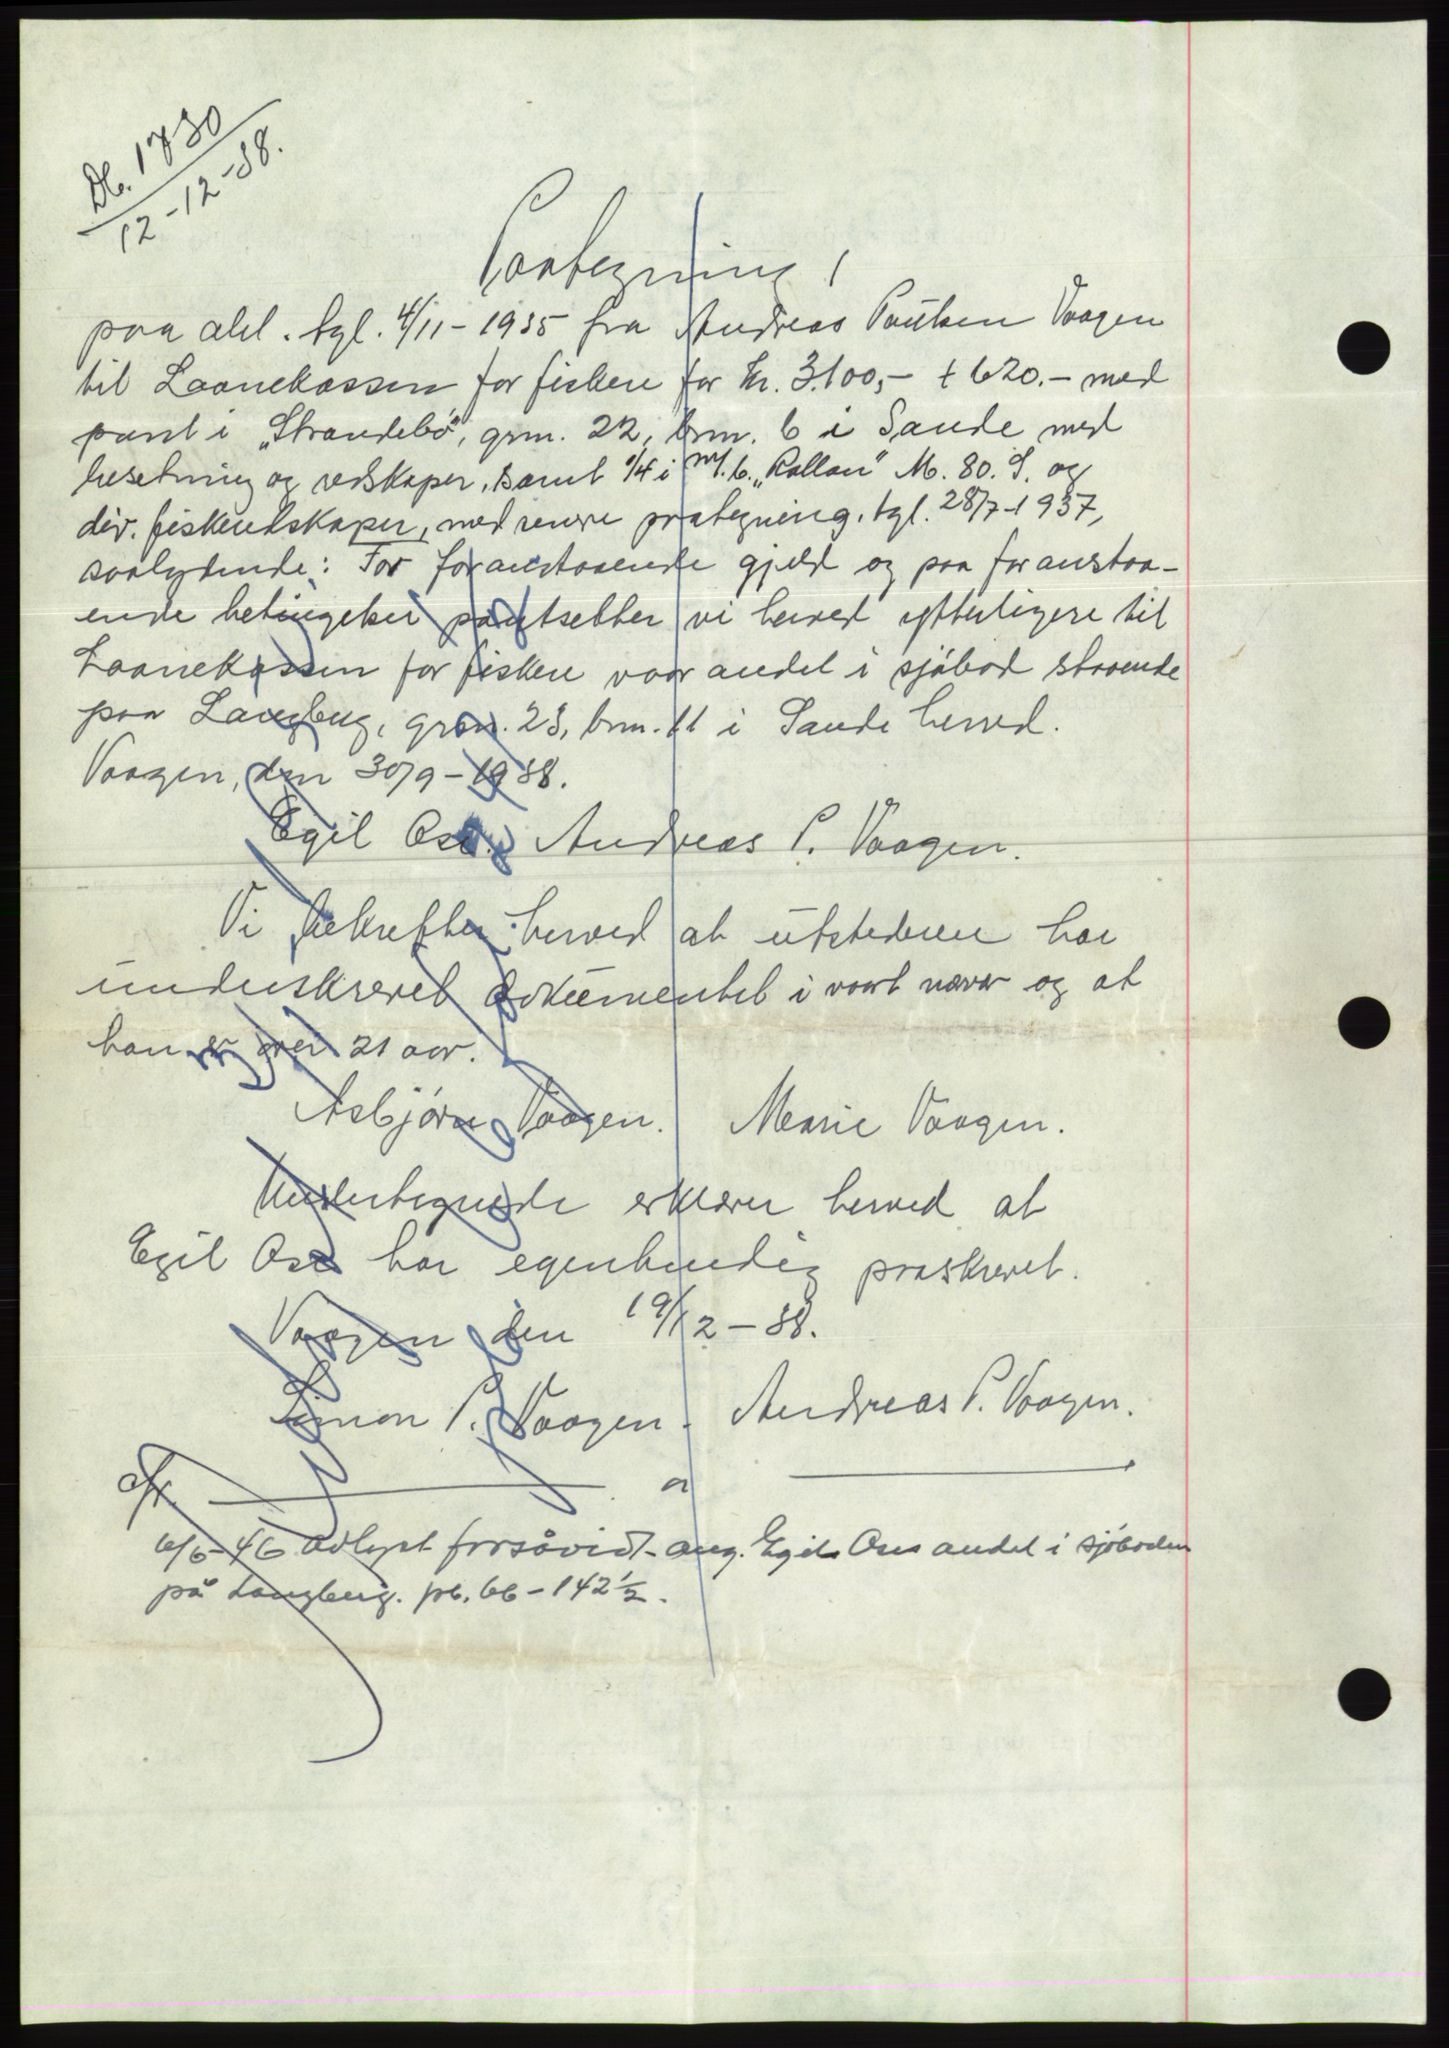 Db. 1730
12-12-38.
Paategning!
paa obl. tgl. 4/11-1935 fra Andreas Paulsen Vaagen
til Laanekassen for fiskere for kr. 3.100,- + 620.- med
pant i „Strandebö", grn. 22, brn. 6 i Sande med
besetning og redskaper, samt 1/4 i m/b. „Rollon" M. 80. S. og
div. fiskeredskaper, med senere paategning, tgl. 28/7-1937,
saalydende: For foranstaaende gjeld og paa foranstaa-
ende betingelser pantsetter vi herved ytterligere til
Laanekassen for fiskere vaar andel i sjöbod staaende
paa Langberg, grn. 23, brn. 11 i Sande herred.
Vaagen, den 30/9-1938.
Egil Ose. Andreas P. Vaagen.
Vi bekrefter herved at utstederen har
underskrevet dokumentet i vaart nærvær og at
han er over 21 aar.
Asbjörn Vaagen. Marie Vaagen.
Undertegnede erklærer herved at
Egil Ose har egenhendig paaskrevet.
Vaagen den 19/12-38.
Simon P. Vaagen. Andreas P. Vaagen.
6/6-46 Avlyst forsåvidt ang. Egil Oses andel i sjöboden
på Langberg. pb. 66-142½.